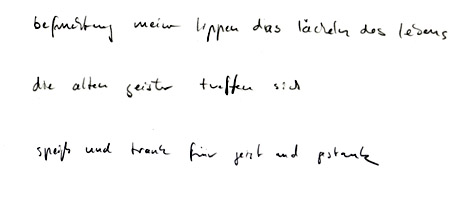 befeuchtung meiner lippen das lächeln des lebens
die alten geister treffen sich
speiß und trank für geist und gestank